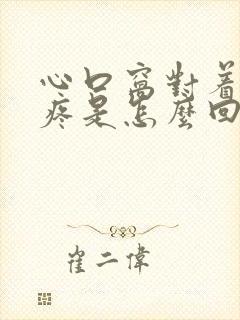 心口窩對着
疼是怎麼回
崔二偉